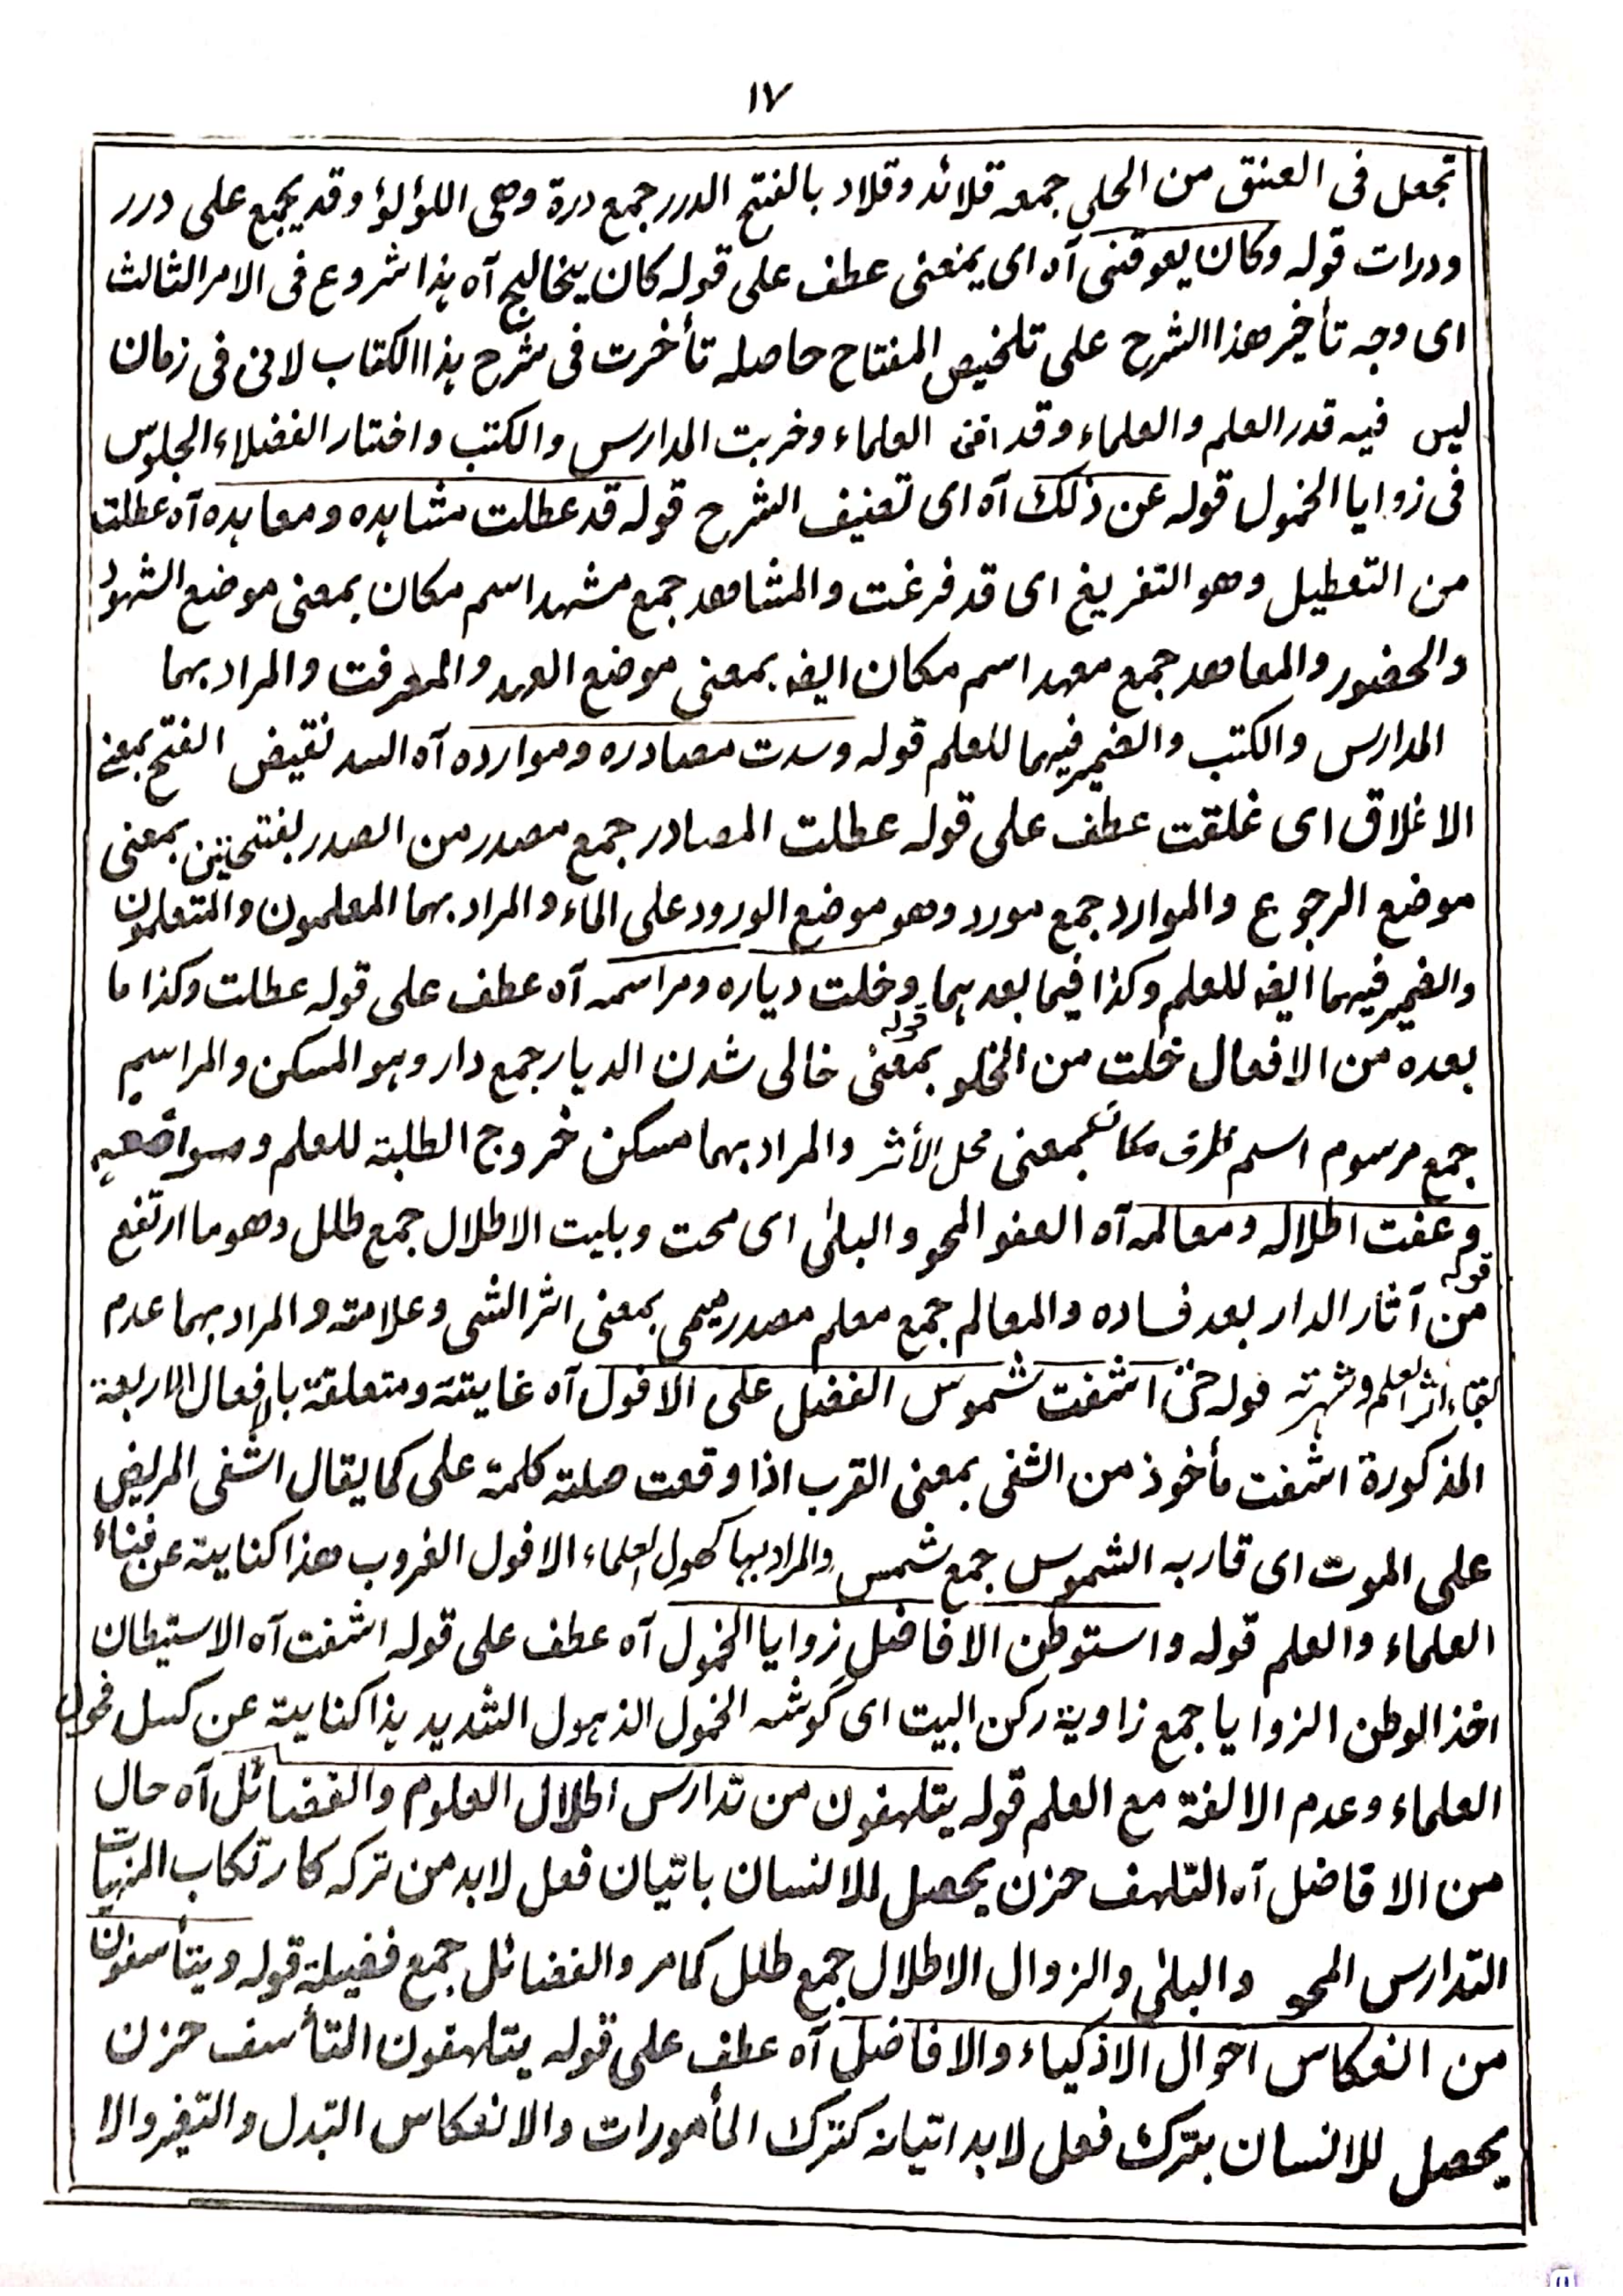 ١٧
تجعل فى العنق من الحلى جمعه قلائد وقلاد بالفتح الدرر جمع درة وهى اللؤلؤ وقد يجمع على درر
ودرات قوله وكان يعوقنى آه اى يمنعنى عطف على قوله كان يخالج آه هذا شروع فى الامر الثالث
اى وجه تأخير هذا الشرح على تلخيص المفتاح حاصله تأخرت فى شرح هذا الكتاب لانى فى زمان
ليس فيه قدر العلم والعلماء وقد افنى العلماء وخربت المدارس والكتب واختار الفضلاء الجلوس
فى زوايا الخمول قوله عن ذلك آه اى تصنيف الشرح قوله قد عطلت مشاهده ومعاهده آه عطلت
من التعطيل وهو التفريغ اى قد فرغت والمشاهد جمع مشهد اسم مكان بمعنى موضع الشهود
والحضور والمعاهد جمع معهد اسم مكان ايضا بمعنى موضع العهد والمعرفت والمراد بهما
المدارس والكتب والضمير فيهما للعلم قوله وسدت مصادره وموارده آه السد نقيض الفتح بمعنى
الاغلاق اى غلقت عطف على قوله عطلت المصادر جمع مصدر من الصدر بفتحتين بمعنى
موضع الرجوع والموارد جمع مورد وهو موضع الورود على الماء والمراد بهما المعلمون والمتعلمون
والضمير فيهما ايضا للعلم وكذا فيما بعدهما قوله وخلت دياره ومراسمه آه عطف على قوله عطلت وكذا ما
بعده من الافعال خلت من الخلو بمعنى خالى شدن الديار جمع دار وهو المسكن والمراسم
جمع مرسوم اسم ظرف مكان بمعنى محل الأثر والمراد بهما مسكن خروج الطلبة للعلم ومواضعه
قوله وعفت اطلاله ومعالمه آه العفو المحو والبلى اى محت وبليت الاطلال جمع طلل وهو ما ارتفع
من آثار الدار بعد فساده والمعالم جمع معلم مصدر ميمى بمعنى اثر الشى وعلامته والمراد بهما عدم
بقاء اثر العلم وشهرته قوله حتى اشفت شموس الفضل على الافول آه غايتة ومتعلقة بالافعال الاربعة
المذكورة اشفت مأخوذ من الشفى بمعنى القرب اذا وقعت صلته كلمة على كما يقال اشفى المريض
على الموت اى قاربه الشموس جمع شمس والمراد بها كهول العلماء الافول الغروب هذا كناية عن فناء
العلماء والعلم قوله واستوطن الافاضل زوايا الخمول آه عطف على قوله اشفت آه الاستيطان
اخذ الوطن الزوايا جمع زاوية ركن البيت اى گوشه الخمول الذهول الشديد هذا كناية عن كسل فحول
العلماء وعدم الالفة مع العلم قوله يتلهفون من تدارس اطلال العلوم والفضائل آه حال
من الافاضل آه التلهف حزن يحصل للانسان باتيان فعل لابد من تركه كارتكاب المنهيات
التدارس المحو والبلى والزوال الاطلال جمع طلل كما مر والفضائل جمع فضيلة قوله ويتأسفون
من انعكاس احوال الاذكياء والافاضل آه عطف على قوله يتلهفون التأسف حزن
يحصل للانسان بترك فعل لابد اتيانه كترك المأمورات والانعكاس التبدل والتغير والا